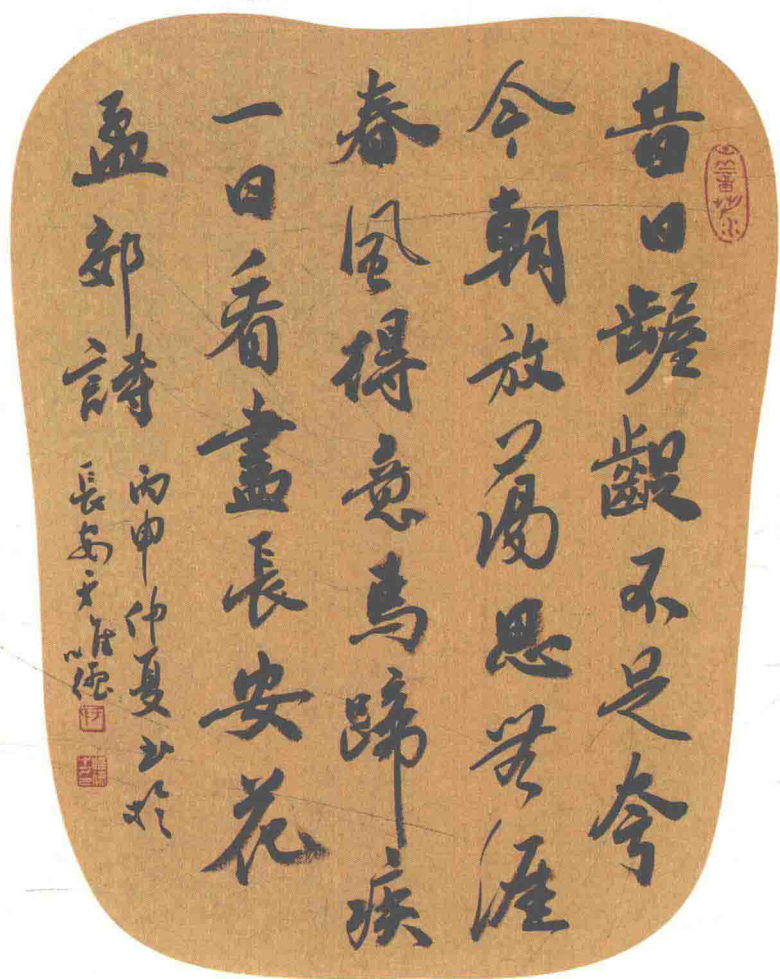 昔日齷齪不足夸
今朝放蕩思無涯
春風得意馬蹄疾
一日看盡長安花
孟郊詩
丙申仲夏書於
長安